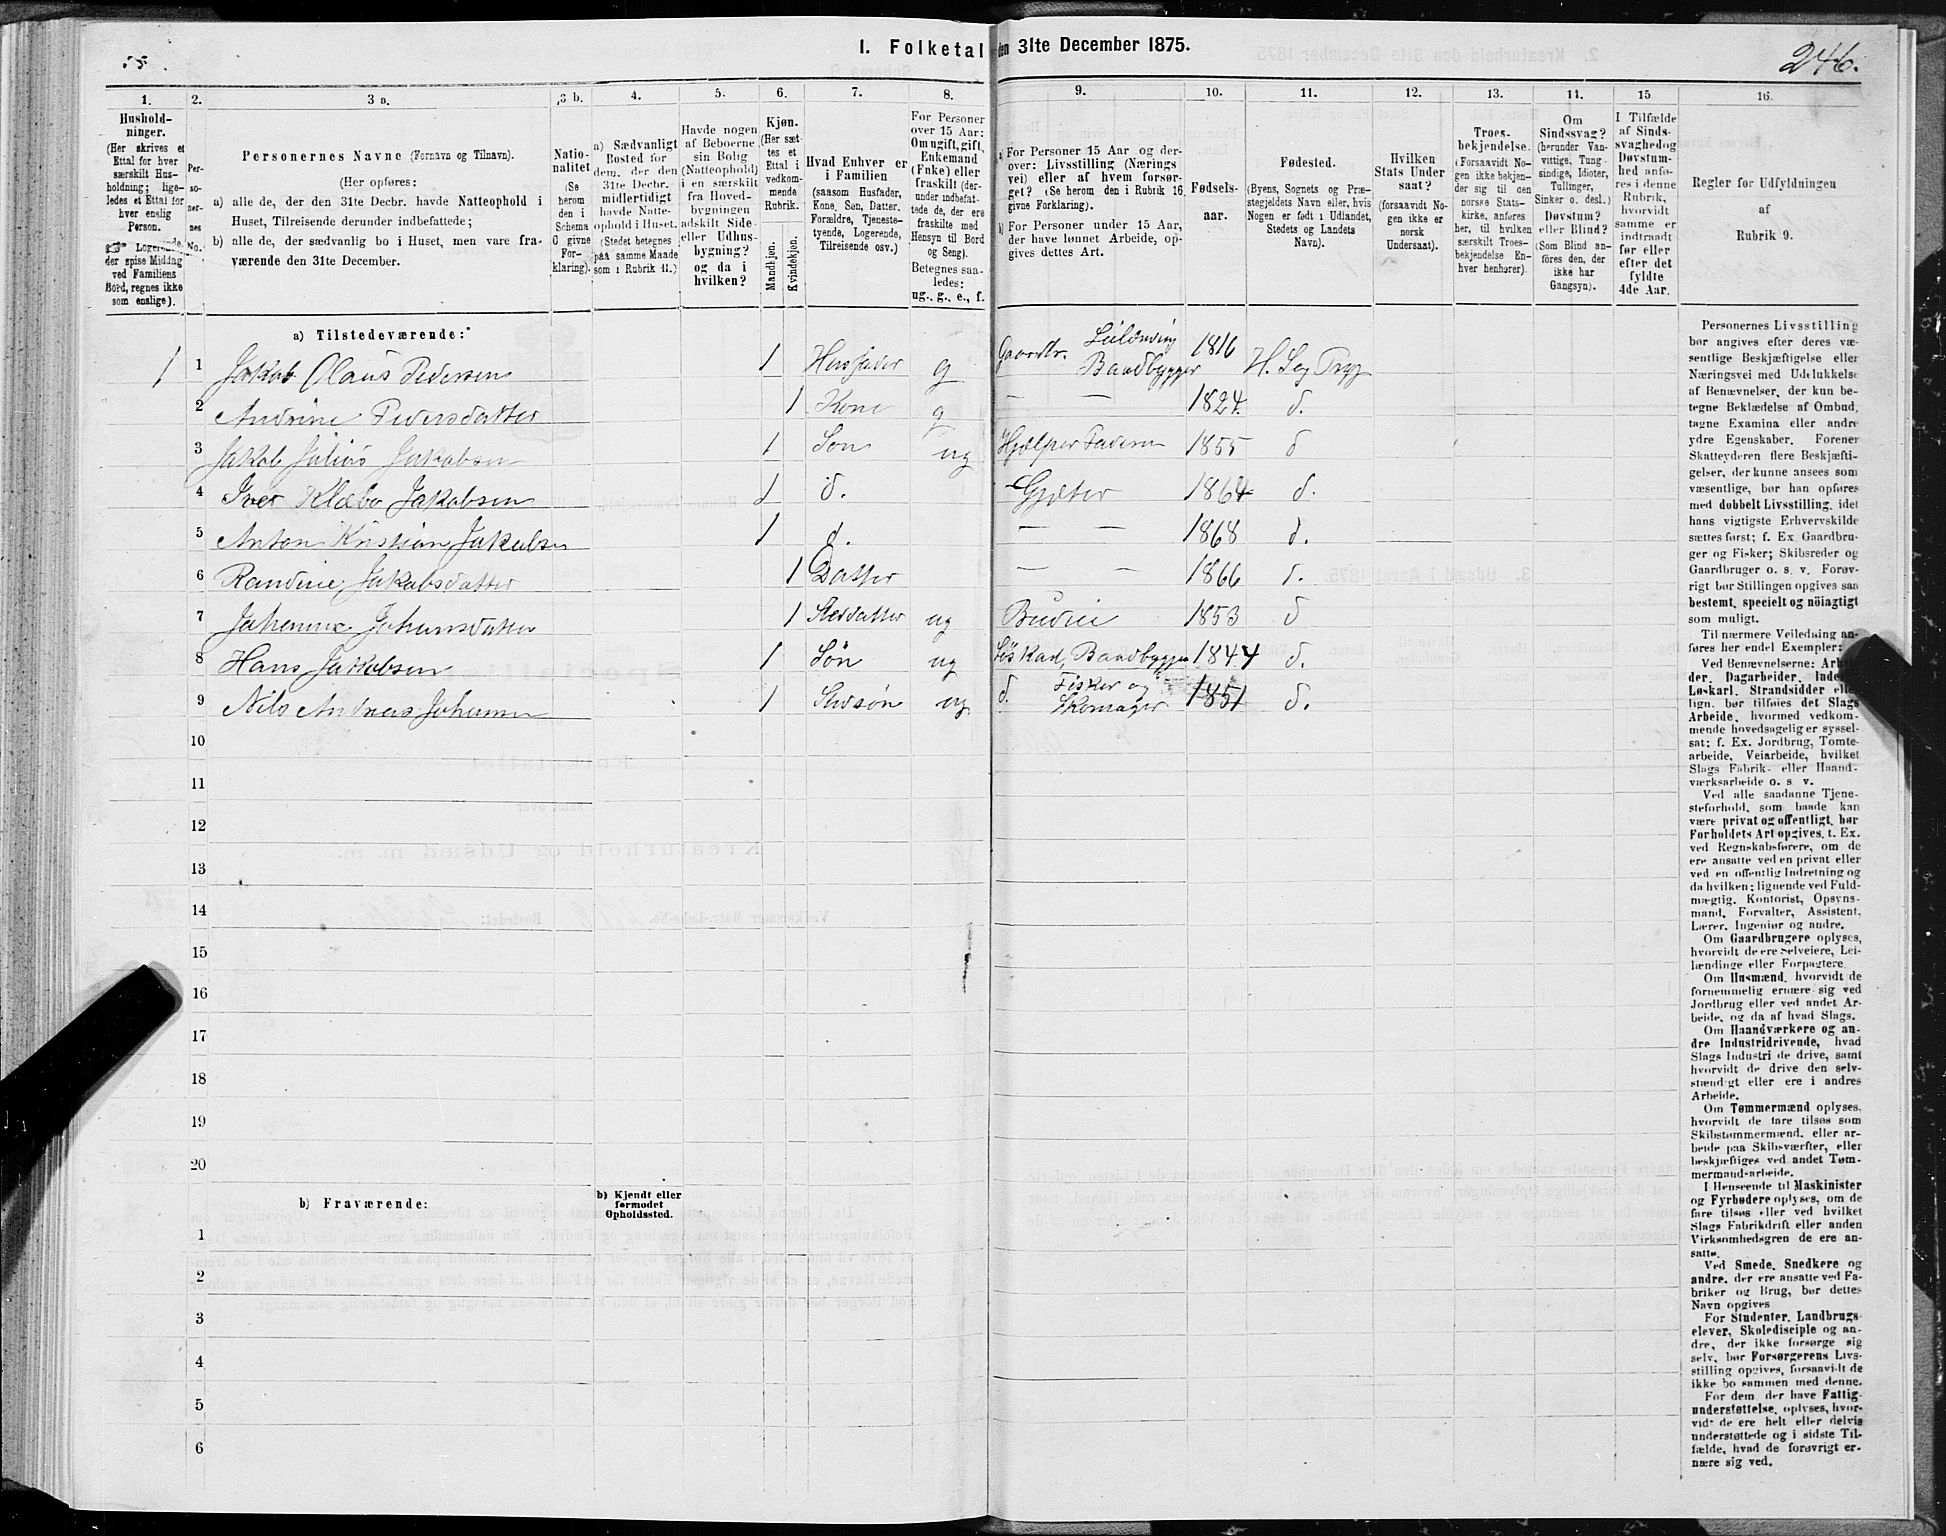 I. Folketal den 31te December 1875.
246.
1.
Hushold-
ninger.
(Her skrives et
Ettal for hver
særskilt Hus-
holdning; lige-
ledes et Ettal for
hver enslig
Person.
Logerende,
der spise Middag
ved Familiens
Bord, regnes ikke
som enslige).
2.
Per-
so-
ner-
nes
No.
3 a.
Personernes Navne (Fornavn og Tilnavn).
(Her opføres:
a) alle de, der den 31te Decbr. havde Natteophold i
Huset, Tilreisende derunder indbefattede;
b) alle de, der sædvanlig bo i Huset, men vare fra-
værende den 31te December.
3 b.
Natio-
nalitet
(Se
herom
den i
Schema
C givne
For-
klaring).
4.
a) Sædvanligt
Bosted for
dem, der den
31te Decbr.
midlertidigt
havde Natte-
ophold i Huset.
(Stedet betegnes
paa samme Maade
som i Rubrik 11.)
5.
Havde nogen
af Beboerne
sin Bolig
(Natteophold)
i en særskilt
fra Hoved-
bygningen
adskilt Side-
eller Udhus-
bygning?
og da i
hvilken?
6.
Kjøn.
(Her sæt-
tes et
Ettal i
vedkom-
mende
Rubrik.
Mandkjøn.
Kvindekjøn.
7.
Hvad Enhver er
i Familien
(saasom Husfader,
Kone, Søn, Datter,
Forældre, Tjeneste-
tyende, Logerende,
Tilreisende osv.)
8.
For Personer
over 15 Aar:
Om ugift, gift,
Enkemand
(Enke) eller
fraskilt (der-
under indbefat-
tede de, der ere
fraskilte med
Hensyn til Bord
og Seng).
Betegnes saa-
ledes:
ug., g., e., f.
9.
a For Personer 15 Aar og der-
over: Livsstilling (Nærings
vei) eller af hvem forsør-
get? (Se herom den i Rubrik 16
givne Forklaring).
b) For Personer under 15 Aar,
der have lønnet Arbeide, op-
gives dettes Art.
10.
Fødsels-
aar.
11.
Fødested.
(Byens, Sognets og Præ-
stegjeldets Navn eller, hvis
Nogen er født i Udlandet,
Stedets og Landets
Navn).
12.
Hvilken
Stats Under
saat?
(forsaavidt No-
gen ikke er
norsk
Undersaat).
13.
Troes-
bekjendelse.
(Forsaavidt No-
gen ikke bekjen-
der sig til den
norske Stats-
kirke, anføres
her, til hvilken
særskilt Troes-
bekjendelse En-
hver henhører).
14.
Om
Sindssvag?
(herunder Van-
vittige, Tung-
sindige, Idioter,
Tullinger,
Sinker o. desl.)
Døvstum?
eller Blind?
(Som Blind an-
føres den, der
ikke har
Gangsyn).
15
I Tilfælde
af Sinds-
svaghed og
Døvstum-
hed anfø-
res i denne
Rubrik,
hvorvidt
samme er
indtraadt
før eller
efter det
fyldte
4de Aar.
16.
Regler for Udfyldningen
af
Rubrik 9.
a) Tilstedeværende:
1 1 Jakob Olaus Pedersen 1 Husfader g Gaardbr. Leilænding Baadbygger 1816 H. Sog
2 Andrine Pedersdatter 1 Kone g — — 1824. d.
3 Jakob Julius Jakobsen 1 Søn ug Hjælper Faderen 1855 d
4 Iver Klæbo Jakobsen 1 d. Gjæter 1864 d.
5 Anton Kristian Jakobsen 1 d. — — 1868 d.
6 Randine Jakobsdatter 1 Datter — — 1866 d.
7 Johanne Johansdatter 1 Steddatter ug Budeie 1853 d
8 Hans Jakobsen 1 Søn ug Løskarl, Baadbygger 1844 d.
9 Nils Andreas Johansen 1 Stedsøn ug d. Fisker og Skomager 1851 d.
10
11
12
13
14
15
16
17
18
19
20
b) Fraværende:
b) Kjendt eller
formodet
Opholdssted.
1
2
3
4
5
6
Personernes Livsstilling
bør angives efter deres væ-
sentlige Beskjæftigelse eller
Næringsvei med Udelukkelse
af Benævnelser, der kun be-
tegne Beklædelse af Ombud,
tagne Examina eller andre
ydre Egenskaber. Forener
Skatteyderen flere Beskjæfti-
gelser, der kunne ansees som
væsentlige, bør han opføres
med dobbelt Livsstilling, idet
hans vigtigste Erhvervskilde
sættes først; f. Ex. Gaardbru-
ger og Fisker; Skibsreder og
Gaardbruger o. s. v. Forøv-
rigt bør Stillingen opgives saa
bestemt, specielt og nöiagtigt
som muligt.
Til nærmere Veiledning an-
føres her endel Exempler:
Ved Benævnelserne: Arbei-
der, Dagarbeider, Inder-
Løskarl, Strandsidder eller
lign. bør tilføies det Slags
Arbeide, hvormed vedkom-
mende hovedsagelig er syssel-
sat; f. Ex. Jordbrug, Tomte-
arbeide, Veiarbeide, hvilket
Slags Fabrik- eller Haand-
værksarbeide o. s. v.
Ved alle saadanne Tjene-
steforhold, som baade kan
være privat og offentligt, bør
Forholdets Art opgives, t. Ex.
ved Regnskabsførere, om de
ere ansatte ved en privat eller
ved en offentlig Indretning og
da hvilken; lignende ved Fuld-
mægtig, Kontorist, Opsyns-
mand, Forvalter, Assistent,
Lærer, Ingeniør og andre.
Om Gaardbrugere oplyses,
hvorvidt de ere Selveiere, Lei-
lændinge eller Forpagtere.
Om Husmænd, hvorvidt de
fornemmelig ernære sig ved
Jordbrug eller ved andet Ar-
beide, og da af hvad Slags.
Om Haandværkere og an-
dre Industridrivende, hvad
Slags Industri de drive, samt
hvorvidt de drive den selv-
stændigt eller ere i andres
Arbeide.
Om Tømmermænd oplyses,
hvorvidt de fare tilsøs som
Skibstømmermænd, eller ar-
beide paa Skibsværfter, eller
beskjæftiges ved andet Tøm-
mermandsarbeide.
I Henseende til Maskinister
og Fyrbødere oplyses, om de
fare tilsøs eller ved hvilket
Slags Fabrikdrift eller anden
Virksomhedsgren de ere an-
satte.
Ved Smede, Snedkere og
andre, der ere ansatte ved Fa-
briker og Brug, bør dettes
Navn opgives
For Studenter, Landbrugs-
elever, Skoledisciple og an-
dre, der ikke forsørge sig
selv, bør Forsørgerens Livs-
stilling opgives, forsaavidt de
ikke bo sammen med denne.
For dem, der have Fattig-
understøttelse, oplyses, hvor-
vidt de ere helt eller delvis
understøttede og i sidste Til-
fælde, hvad de forøvrigt er-
nære sig ved.